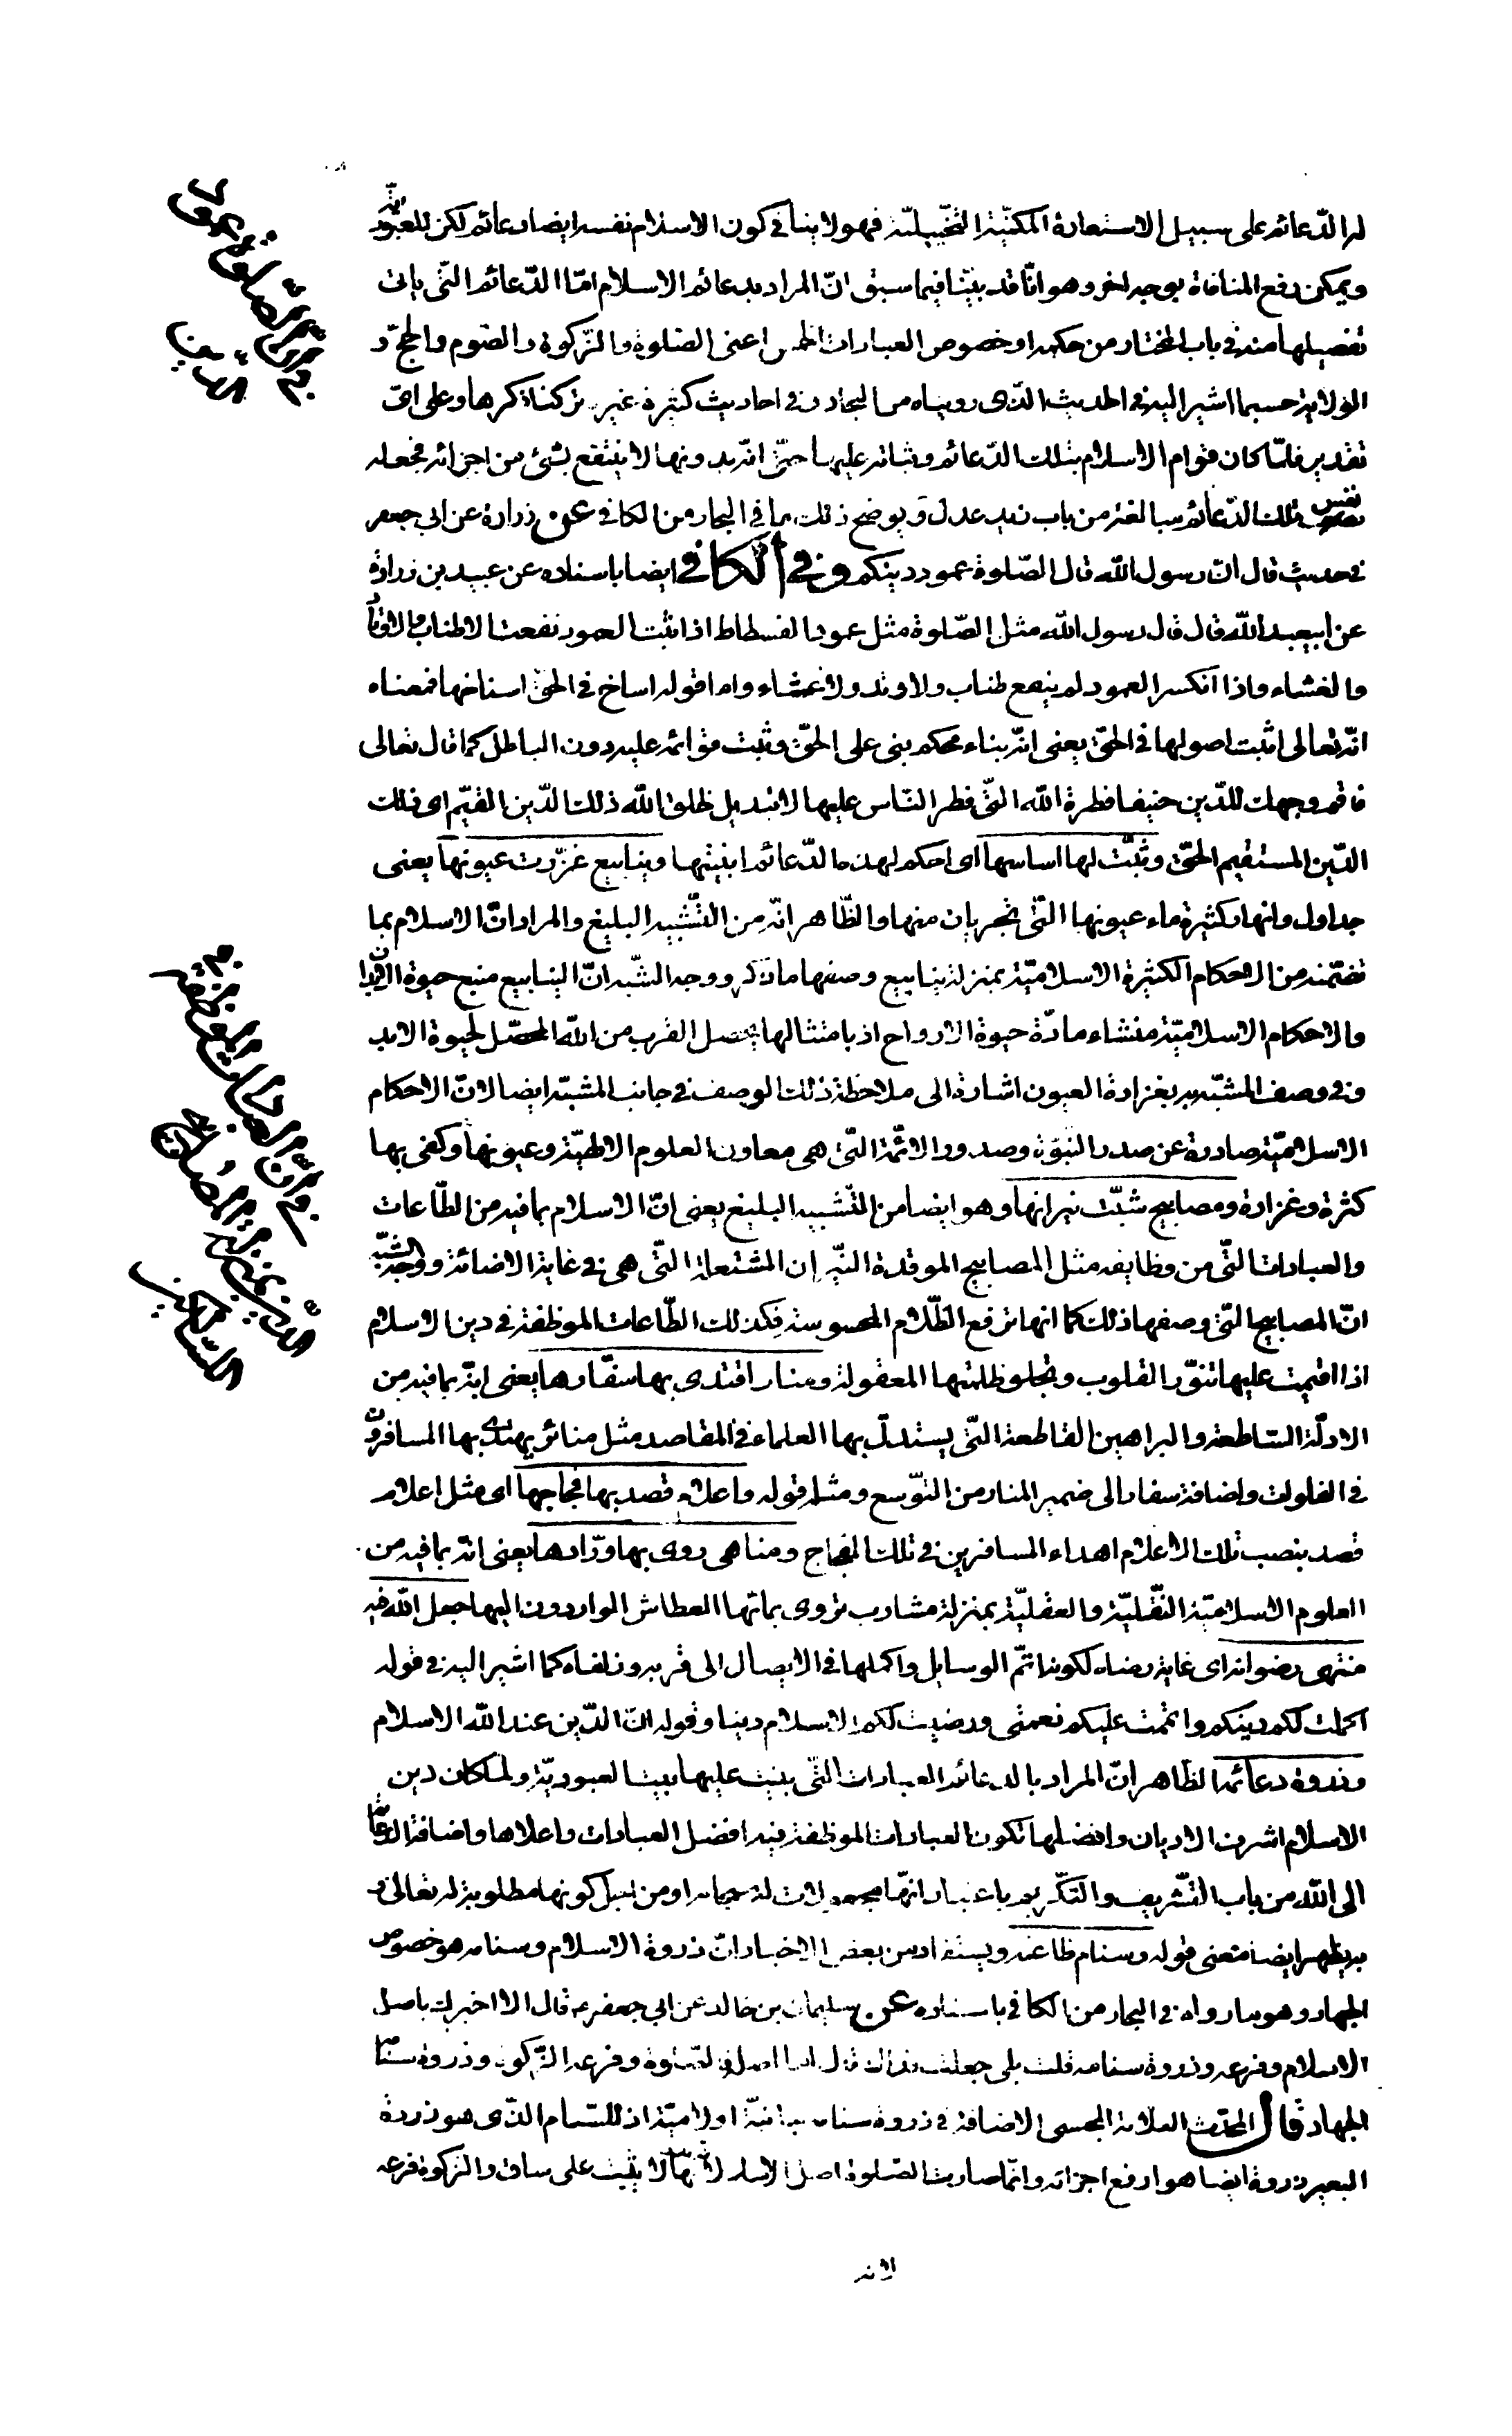 له الدّعائم على سبيل الاستعارة المكنيّة التخييليّة فهو لا ينافى كون الاسلام نفسه ايضا دعائم لكن للعبوديّة
ويمكن رفع المنافاة بوجه اخر وهو انّا قد بيّنا فيما سبق انّ المراد بدعائم الاسلام امّا الدّعائم التّى ياتى
تفصيلها منه فى باب المختار من حكمه او خصوص العبادات الخمس اعنى الصّلوة والزّكوة والصّوم والحجّ و
الولاية حسبما اشير اليه فى الحديث الذّى رويناه من البحار وفى احاديث كثيرة غيره تركنا ذكرها وعلى اىّ
تقدير فلمّا كان قوام الاسلام بتلك الدّعائم وثباته عليها حتّى انّه بدونها لا ينتفع بشئ من اجزائه فجعله
نفس تلك الدّعائم مبالغة من باب زيد عدل ويوضح ذلك ما فى البحار من الكافى عن زرارة عن ابى جعفر
فى حديث قال انّ رسول الله قال الصّلوة عمود دينكم وفى الكافى ايضا باسناده عن عبيد بن زرارة
عن ابيعبد الله قال قال رسول الله مثل الصّلوة مثل عمود الفسطاط اذا ثبت العمود نفعت الاطناب والاوتاد
والغشاء واذا انكسر العمود لم ينفع طناب ولا وتد ولا غشاء واما قوله اساخ فى الحقّ اسناخها فمعناه
انّه تعالى اثبت اصولها فى الحقّ يعنى انّه بناء محكم بنى على الحقّ وثبت قوائمه عليه دون الباطل كما قال تعالى
فاقم وجهك للدّين حنيفا فطرة الله التّى فطر النّاس عليها لا تبديل لخلق الله ذلك الدّين القيّم اى ذلك
الدّين المستقيم الحقّ وثبّت لها اساسها اى احكم لهذه الدّعائم ابنيتها وينابيع غزّرت عيونها يعنى
جداول وانهار كثيرة ماء عيونها التّى تجريان منها والظّاهر انّه من التّشبيه البليغ والمراد انّ الاسلام بما
تضمّنه من الاحكام الكثيرة الاسلاميّة بمنزلة ينابيع وصفها ما ذكر ووجه الشّبه انّ الينابيع منبع حيوة الابدان
والاحكام الاسلاميّة منشاء مادّة حيوة الارواح اذ بامتثالها يحصل القرب من الله المحصّل لحيوة الابد
وفى وصف المشبّه به بغزارة العيون اشارة الى ملاحظة ذلك الوصف فى جانب المشبّه ايضا لانّ الاحكام
الاسلاميّة صادرة عن صدر النبوّة وصدور الائمّة التّى هى معادن العلوم الالهيّة وعيونها وكفى بها
كثرة وغزارة ومصابيح شبّت نيرانها وهو ايضا من التّشبيه البليغ يعنى انّ الاسلام بما فيه من الطّاعات
والعبادات التّى من وظايفه مثل المصابيح الموقدة النّيران المشتعلة التّى هى فى غاية الاضائة ووجه الشبّه
انّ المصابيح التّى وصفها ذلك كما انها ترفع الظّلام المحسوسة فكذلك الطّاعات الموظفة فى دين الاسلام
اذا اقيمت عليها تنوّر القلوب وتجلو ظلمتها المعقولة ومنار اقتدى بها سفّارها يعنى انّه بما فيه من
الادلّة السّاطعة والبراهين القاطعة التّى يستدلّ بها العلماء فى المقاصد مثل منائر يهتدى بها المسافرون
فى الفلوات واضافة سفار الى ضمير المنار من التوّسع ومثله قوله واعلام قصد بها فجاجها اى مثل اعلام
قصد بنصب تلك الاعلام اهداء المسافرين فى تلك الفجاج ومناهل روى بها ورّادها يعنى انّه بما فيه من
العلوم الاسلاميّة النّقليّة والعقليّة بمنزلة مشارب تروى بمائها العطاش الواردون اليها جعل الله فيه
منتهى رضوانه اى غاية رضاه لكونه اتمّ الوسايل واكملها فى الايصال الى قربه وزلفاه كما اشير اليه فى قوله
اكملت لكم دينكم واتممت عليكم نعمتى ورضيت لكم الاسلام دينا وقوله انّ الدّين عند الله الاسلام
وذروة دعائمه الظاهر انّ المراد بالدعائم العبادات التّى بنيت عليها بيت العبوديّة ولمّا كان دين
الاسلام اشرف الاديان وافضلها تكون العبادات الموظفة فيه افضل العبادات واعلاها واضافة الدعائم
الى الله من باب التّشريف والتكّريم باعتبار انّها مجعولات له سبحانه او من اجل كونها مطلوبة له تعالى و
به يظهر ايضا معنى قوله وسنام طاعته ويستفاد من بعض الاخبار انّ ذروة الاسلام وسنامه هو خصوص
الجهاد وهو ما رواه فى البحار من الكافى باسناده عن سليمان بن خالد عن ابى جعفر ع قال الا اخبرك باصل
الاسلام وفرعه وذروة سنامه قلت بلى جعلت فداك قال اما اصله فالصّلوة وفرعه الزّكوة وذروة سنامه
الجهاد قال المحدّث العلامة المجلسى الاضافة فى ذروة سنامه بيانيّة او لاميّة اذ للسّنام الذّى هو ذروة
البعير ذروة ايضا هو ارفع اجزائه وانّما صارت الصّلوة اصل الاسلام لانّه بدونها لا يثبت على ساق والزكوة فرعه
لانه
فى انّ الصّلوة عمود
الدّين
فى انّ العبادات الموظفة فى
الدّين بمنزلة المصابيح